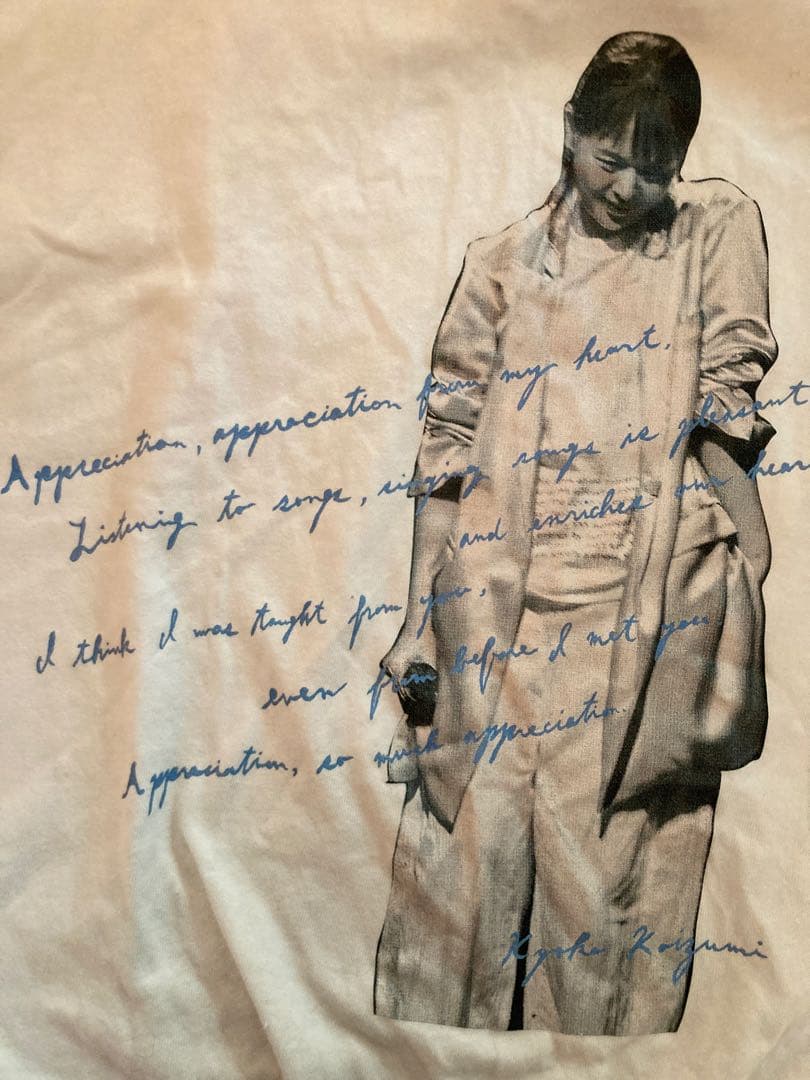 Appreciation, appreciation from my heart.
Listening to songs, singing songs is pleasant
and enriches our hear
I think I was taught from you,
even from before I met you
Appreciation, so much appreciation.
Kyoko Koizumi